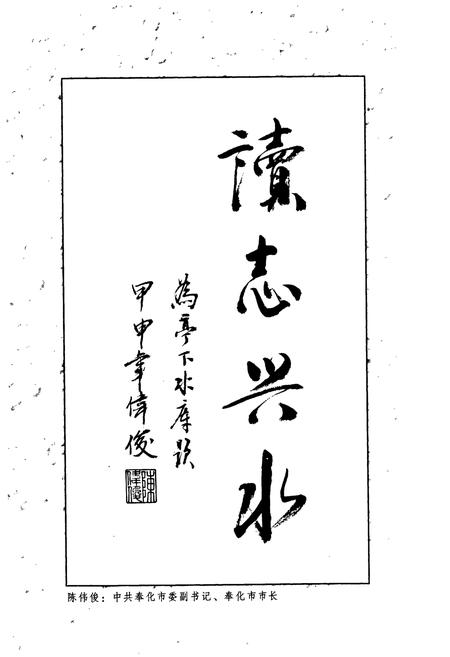 讀志兴水
為亭下水库题
甲申年伟俊
陈伟俊：中共奉化市委副书记、奉化市市长